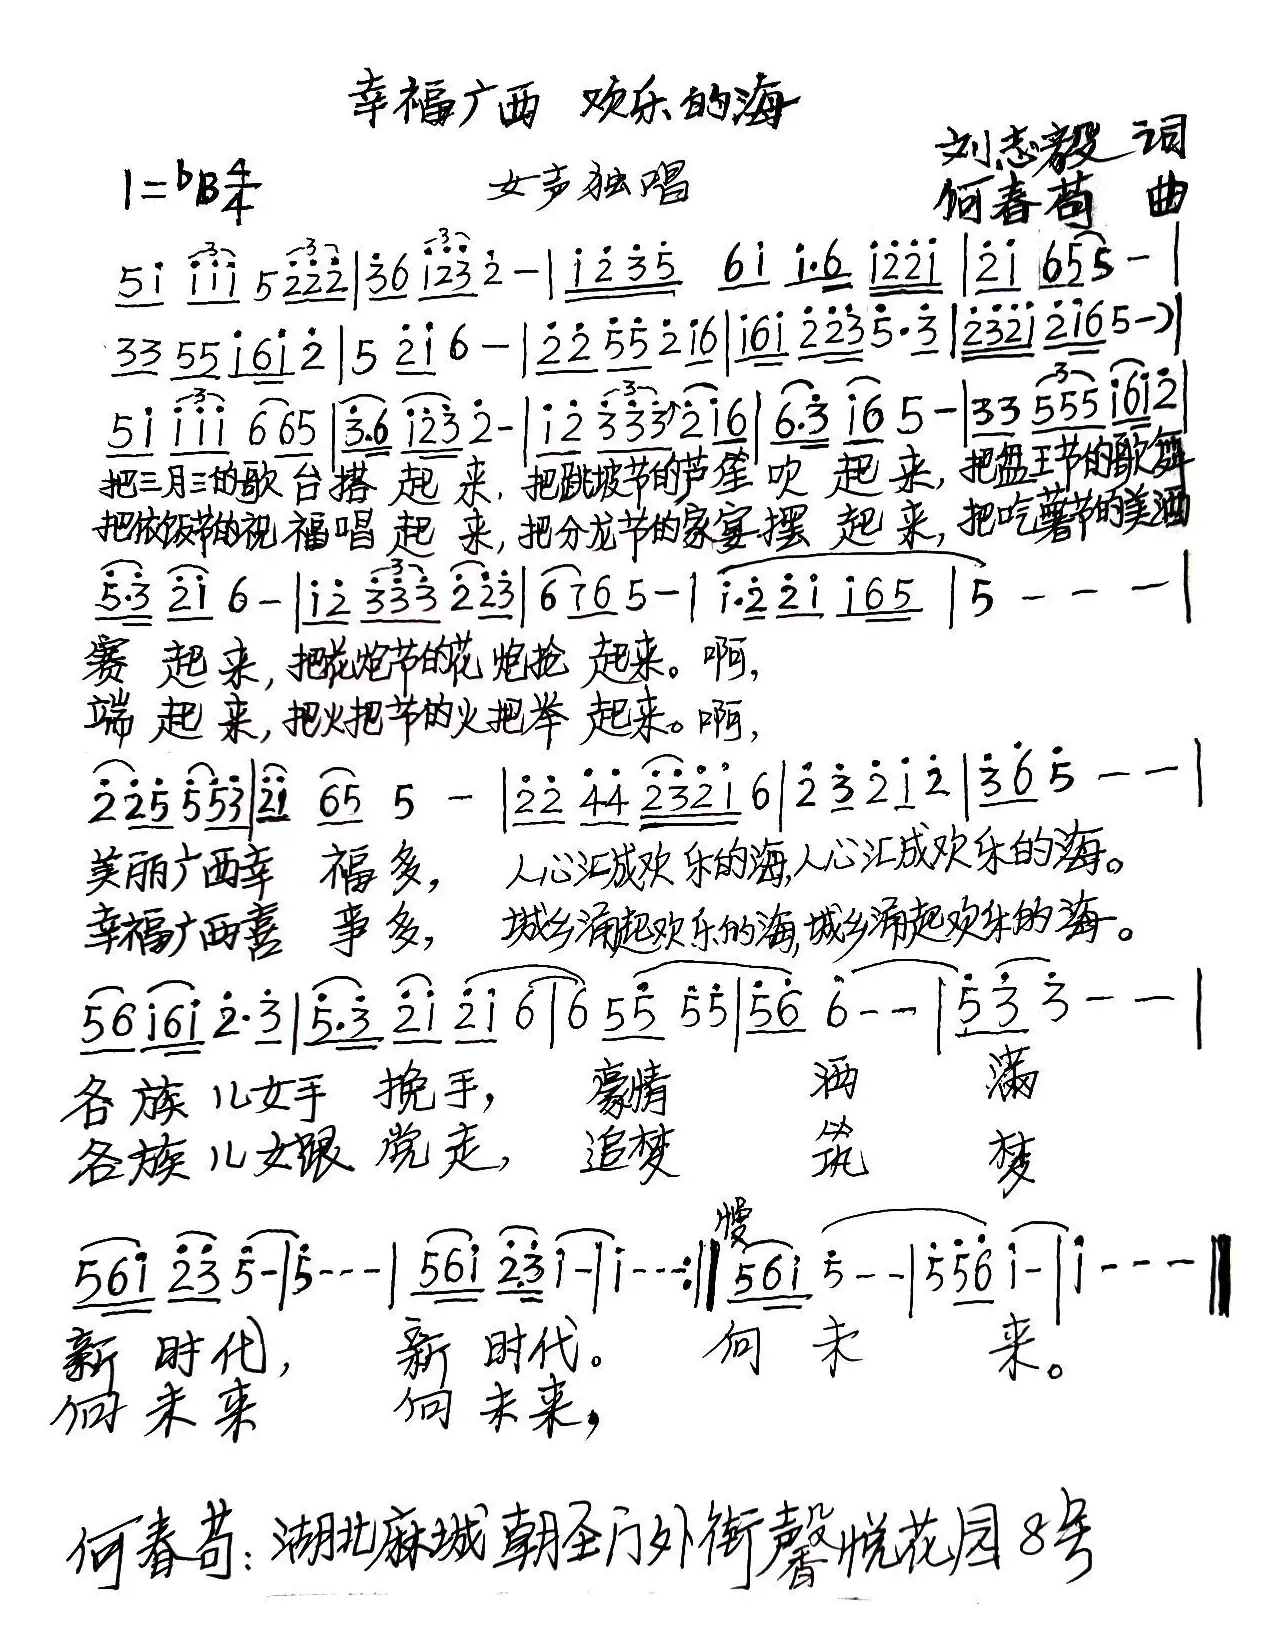 幸福广西 欢乐的海
刘志毅 词
1=bB4/4 女声独唱 何春苟 曲
51̇ 1̇1̇1̇ 5 2̇2̇2̇ | 3̇6 1̇2̇3̇ 2̇ - | 1̇2̇3̇5̇ 61̇ 1̇·6 1̇2̇2̇1̇ | 2̇1̇ 655 - |
33 55 1̇61̇ 2̇ | 5 2̇1̇ 6 - | 2̇2̇ 5̇5̇ 2̇ 1̇6 | 1̇61̇ 2̇2̇3̇ 5̇·3̇ | 2̇3̇2̇1̇ 2̇1̇6 5 -) |
51̇ 1̇1̇1̇ 6 65 | 3̇·6 1̇2̇3̇ 2̇ - | 1̇2̇ 3̇3̇3̇ 2̇ 1̇6 | 6·3̇ 1̇6 5 - | 33 555 1̇61̇ 2̇ |
把三月三的歌台搭起来,把跳坡节的芦笙吹起来,把盘王节的歌舞
把依饭节的祝福唱起来,把分龙节的家宴摆起来,把吃薯节的美酒
5̇·3̇ 2̇1̇ 6 - | 1̇2̇ 3̇3̇3̇ 2̇2̇3̇ | 6765 - | 1̇·2̇ 2̇1̇ 1̇65 | 5 - - - |
赛起来,把花炮节的花炮抢起来。啊,
端起来,把火把节的火把举起来。啊,
2̇2̇5̇ 5̇5̇3̇ | 2̇1̇ 65 5 - | 2̇2̇ 4̇4̇ 2̇3̇2̇1̇ 6 | 2̇ 3̇ 2̇ 1̇ 2̇ | 3̇6̇ 5̇ - - |
美丽广西幸福多, 人心汇成欢乐的海,人心汇成欢乐的海。
幸福广西喜事多, 城乡涌起欢乐的海,城乡涌起欢乐的海。
56 1̇61̇ 2̇·3̇ | 5̇·3̇ 2̇1̇ 2̇1̇ 6 | 6 55̇ 5̇5̇ | 5̇6̇ 6̇ - - | 5̇3̇ 3̇ - - |
各族儿女手挽手, 豪情 洒 满
各族儿女跟党走, 追梦 筑 梦
慢
561̇ 2̇3̇ 5̇ - | 5̇ - - - | 561̇ 2̇·3̇ 1̇ - | 1̇ - - - :|| 561̇ 5̇ - - | 5̇5̇6̇ 1̇ - | 1̇ - - - ||
新时代, 新时代。 向未 来。
向未来 向未来,
何春苟:湖北麻城朝圣门外街馨悦花园8号